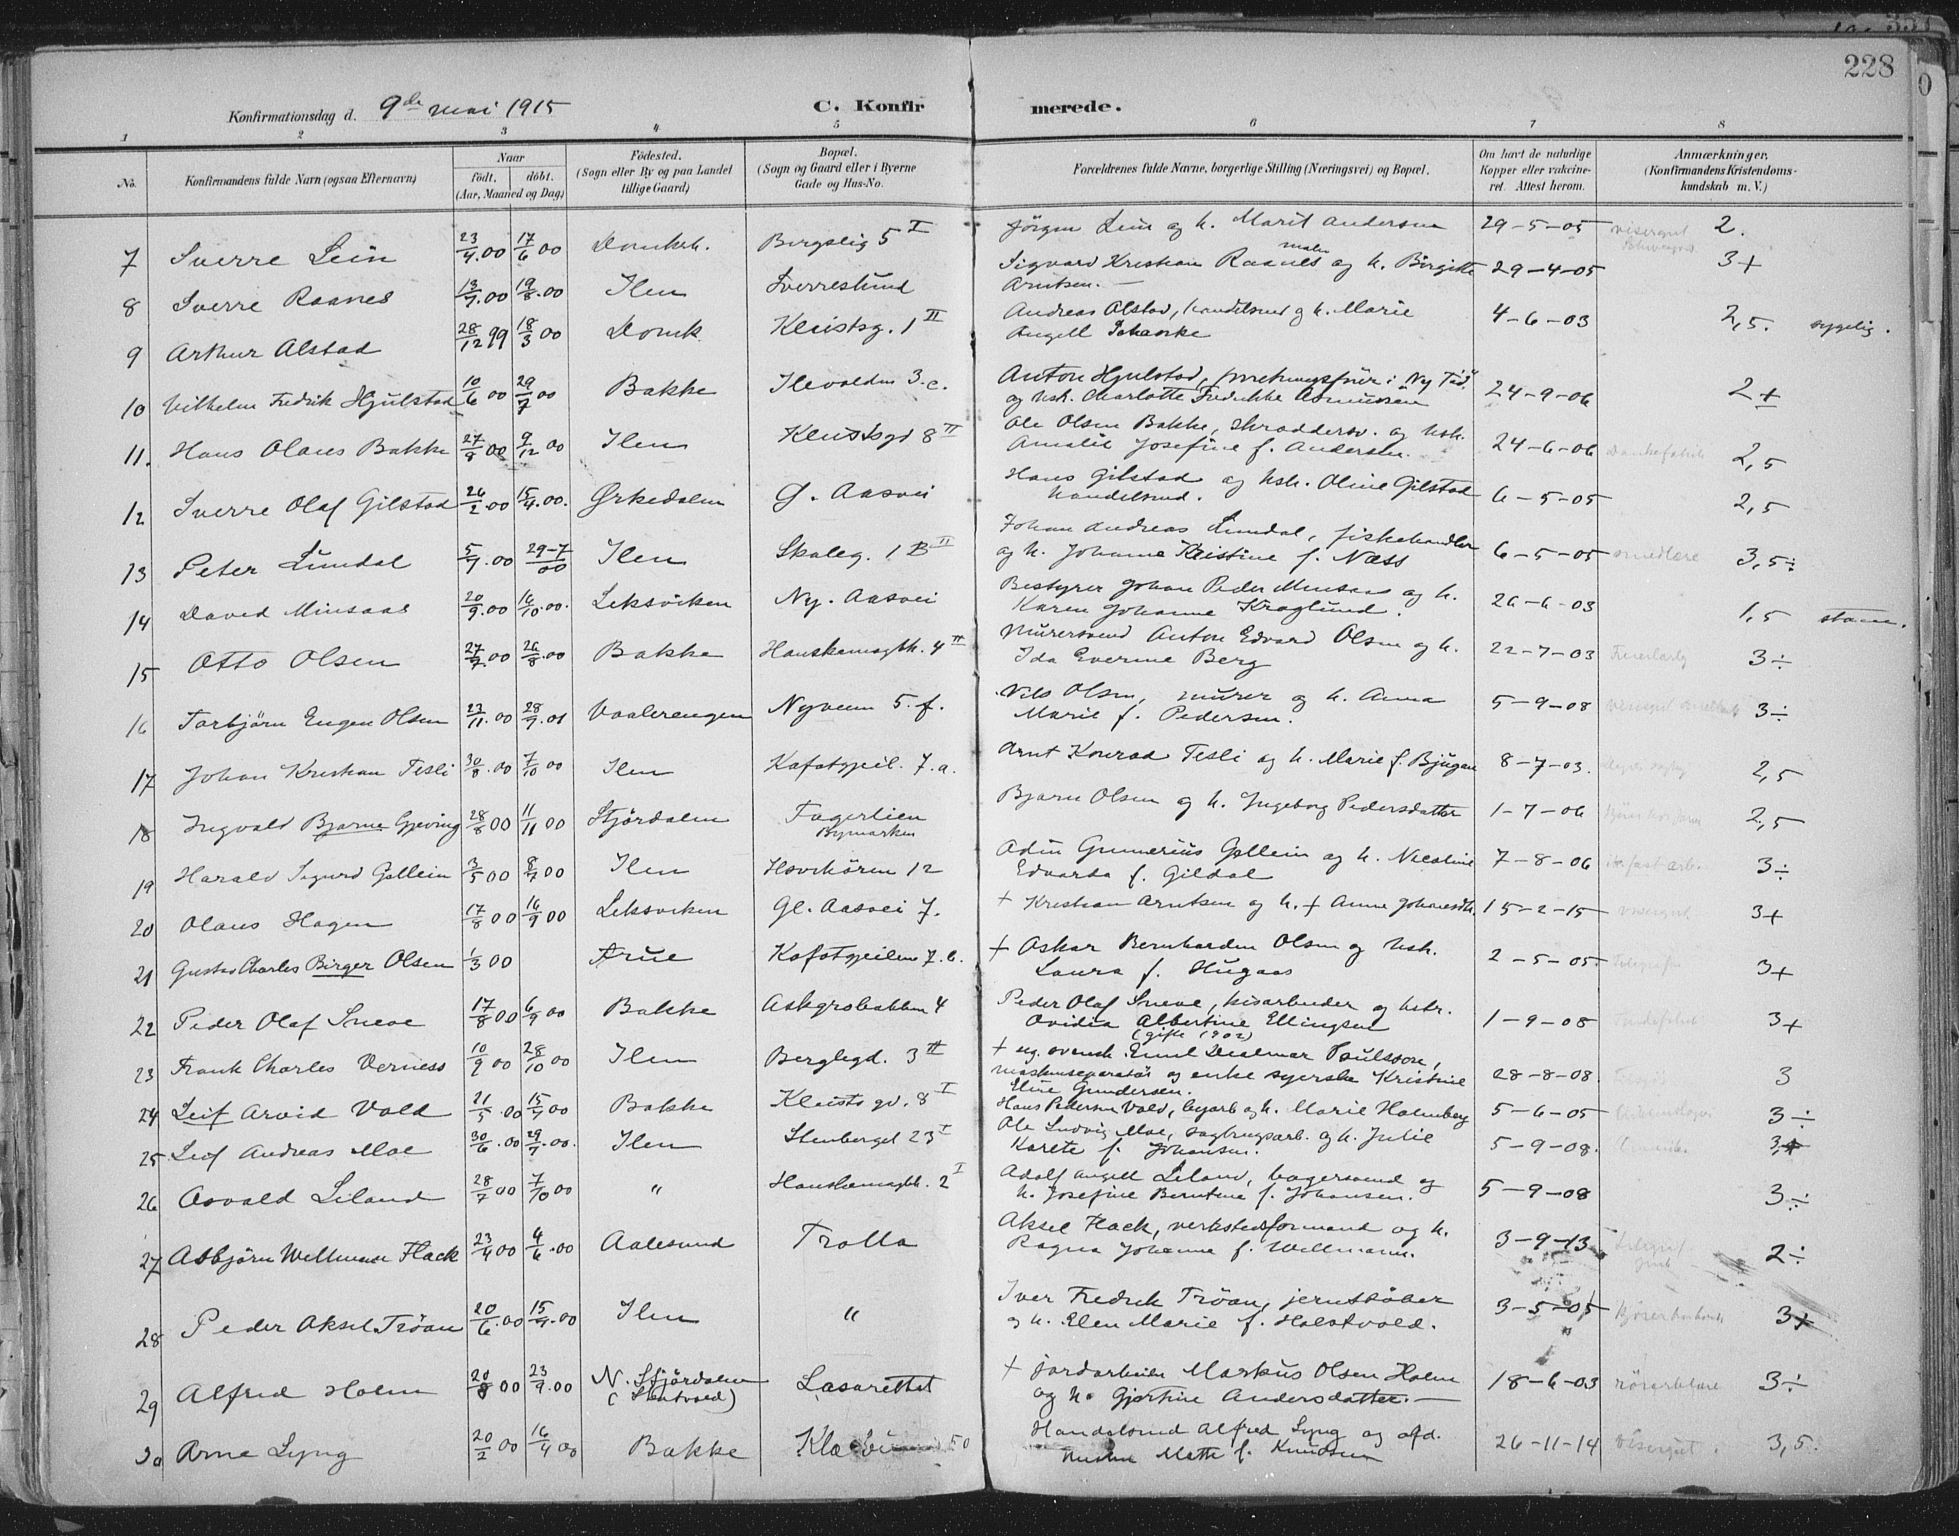 331
228
Konfirmationsdag d. 9de mai 1915 C. Konfirmerede.
1 2 3 4 5 6 7 8
No. Konfirmandens fulde Navn (ogsaa Efternavn) Naar født, døbt. (Aar, Maaned og Dag) Fødested. (Sogn eller By og paa Landet tillige Gaard) Bopæl. (Sogn og Gaard eller i Byerne Gade og Hus-No. Forældrenes fulde Navne, borgerlige Stilling (Næringsvei) og Bopæl. Om havt de naturlige Kopper eller vakcineret. Attest herom. Anmærkninger, (Konfirmandens Kristendomskundskab m. V.)
7 Sverre Lein 23/4.00 17/6 00 Domk. Bergslig 5 I Jörgen Lein og h. Marit Andersen 29-5-05 visergut 2.
8 Sverre Raanes 13/7.00 19/8.00 Ilen Sverreslund Sigvard Kristian Raanes maler og h. Birgitte 29-4-05 3+
Arntsen.—
9 Arthur Alstad 28/12 99 18/3 00 Domk Kleistsg. 1 II Andreas Alstad, handelsmd og h. Marie 4-6-03 2,5. sygelig.
Angell Schanske
10 Vilhelm Fredrik Hjulstad 10/6 00 29/7 00 Bakke Ilevolden 3.c. Anton Hjulstad, forretningsfører i "Ny Tid" 24-9-06 2+
og hsh. Charlotte Fredrikke Asmussen
11. Hans Olaus Bakke 27/8 00 9/12 00 Ilen Kleistsgd 8 II Ole Olsen Bakke, skræddersv. og hsh. 24-6-06 2,5
Amalie Josefine f. Andersen.
12 Sverre Olaf Gilstad 26/2.00 15/4.00. Ørkedalen G. Aasvei Hans Gilstad og hsh. Oline Gilstad 6-5-05 2,5
handelsmd.
13 Peter Lundal 5/7.00 29-7/00 Ilen Skoleg. 1 B II Johan Andreas Lundal, fiskehandler 6-5-05 smedlære 3,5÷
og h. Johanne Kristine f. Næss
14 David Minsaas 20/9.00 16/10.00. Leksviken Ny. Aasvei Bestyrer Johan Peder Minsaas og h. 26-6-03 1,5 stam.
Karen Johanne Kraglund.
15 Otto Olsen 27/7.00 26/8.00 Bakke Hanskemagbk. 4 II Murersvend Anton Edvard Olsen og h. 22-7-03 3÷
Ida Everine Berg
16 Torbjörn Eugen Olsen 23/11.00 28/9.01 Vaalerengen Nyveien 5.f. Nils Olsen, murer og h. Anna 5-9-08 3÷
Marie f. Pedersen.
17 Johan Kristian Tesli 30/8.00 7/10 00 Ilen Kafotgjeil. 7.a. Arnt Konrad Tesli og h. Marie f. Bjugan 8-7-03. 2,5
18 Ingvald Bjarne Gjeving 28/8 00 11/11 00 Stjördalen Fagerlien Bjarne Olsen og h. Ingeborg Pedersdatter 1-7-06 2,5
Bymarken
19 Harald Sigurd Gellein 3/5 00 8/7 00 Ilen Havnkören 12 Odin Gunnerius Gellein og h. Nicoline 7-8-06 3÷
Edvarda f. Gildal
20 Olaus Hagen 17/8 00 16/9 00 Leksviken Gl. Aasvei 7. + Kristian Arntsen og h. + Anne Johansdtr. 15-2-15 visergut 3+
21 Gustav Charles Birger Olsen 1/3 00 Kafotgjeilen 7.b. + Oskar Bernhardin Olsen og hsh. 2-5-05. 3+
Laura f. Hugaas
22 Peder Olaf Sneve 17/8 00 6/9 00 Bakke Askgrobakken 4 Peder Olaf Sneve, bisarbeider og hstr. 1-9-08 3+
Ovidia Albertine Ellingsen
(gift 1902)
23 Frank Charles Verness 10/9 00 28/10 00 Ilen Berglegd. 3 II + ug. svensk. Emil Paulsson, 28-8-08. 3
maskinreparatör og enke syerske Kristine
Eline Gundersen.
24 Leif Arvid Vold 21/5.00 15/7 00 Bakke Kleistsgd. 8 I Hans Pedersen Vold, byarb og h. Marie Holmberg 5-6-05 3÷
25 Leif Andreas Moe 30/6.00 29/7.00. Ilen Stenberget 23 I Ole Ludvig Moe, sagbrugsarb. og h. Julie 5-9-08. 3+
Karete f. Johansen.
26 Osvald Leland 28/7 00 7/10 00 " Hanskemagbk. 2 I Adolf Angell Leland, bagersvend og 5-9-08 3÷
h. Josefine Berntine f. Johansen.
27 Asbjörn Wellmann Flack 23/4 00 4/6.00 Aalesund Trolla Aksel Flack, verkstedsformand og h. 3-9-13 2÷
Ragna Johanne f. Wellmann.
28 Peder Aksel Tröan 20/6.00 15/7.00 Ilen " Iver Fredrik Tröan, jernstöber 3-5-05 3+
og h. Elen Marie f. Holstvold.
29 Alfred Holm 20/8 00 23/9.00 N. Stjördalen Lasarettet + jordarbeider Markus Olsen Holm 18-6-03 3÷
(Skatvold) og h. Gjertine Andersdatter.—
30 Arne Lyng 20/2 00 16/4 00 Bakke 50 Handelsmd Alfred Lyng og afd. 26-11-14 visergut 3,5.
hustru Mette f. Knudsen